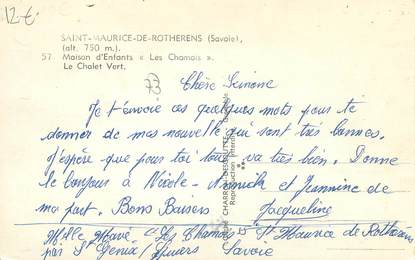 12€
SAINT-MAURICE-DE-ROTHERENS (Savoie),
(alt. 750 m.).
57. Maison d'Enfants « Les Chamois ».
Le Chalet Vert.
73
Chère Simone
Je t'envoie ces quelques mots pour te
donner de mas nouvelle qui sont très bonnes.
J'espère que pour toi tout va très bien. Donne
le bonjour à Nicole - Annick et Jeannine de
ma part. Bons Baisers Jacqueline
Mlle Mavé "Les Chamois" St Maurice de Rotherens
par St Genix / Guiers Savoie
Reproduction interdite